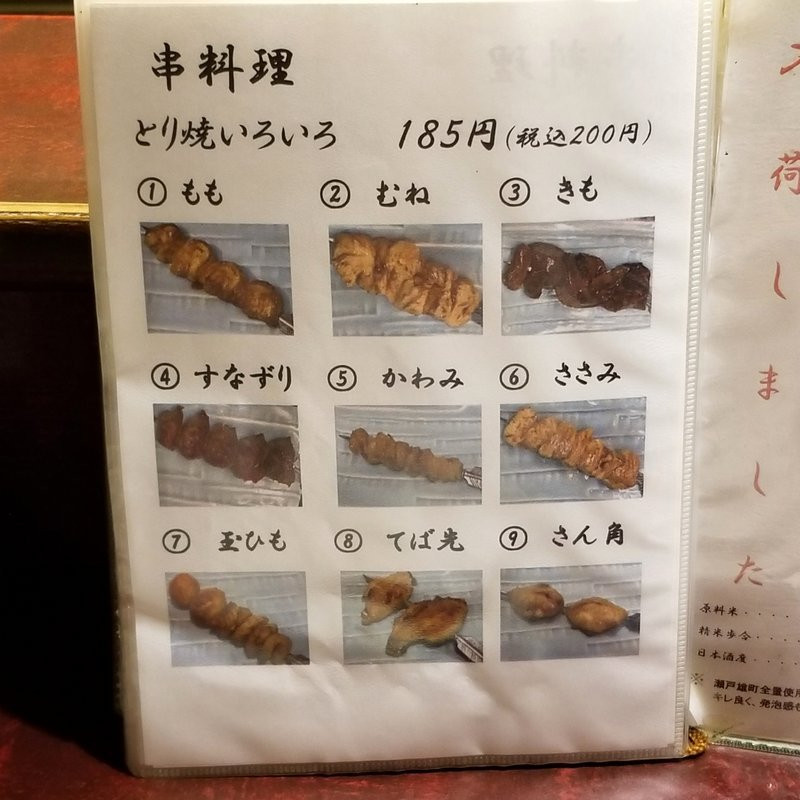 串料理
とり焼いろいろ 185円(税込200円)
① もも ② むね ③ きも
④ すなずり ⑤ かわみ ⑥ ささみ
⑦ 玉ひも ⑧ てば先 ⑨ さん角
荷しました
原料米・・・・
精米歩合・・・・
日本酒度・・・・
※ 瀬戸雄町全量使用
キレ良く、発泡感